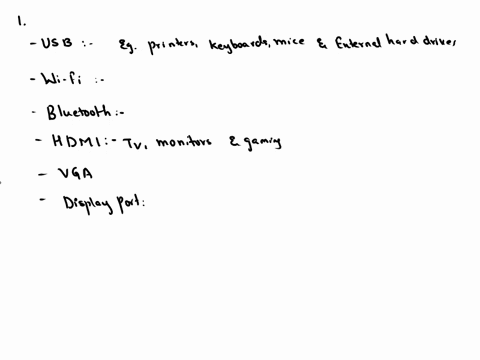 1.
- USB :- Eg. printers, keyboards, mice & External hard drives
- Wi-fi :-
- Bluetooth :-
- HDMI :- TV, monitors & gaming
- VGA
- Display port: